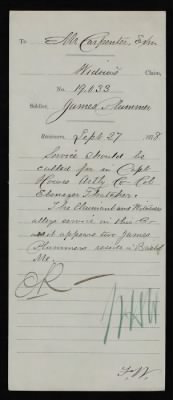 To Mr Carpenter, Exr
Widow's Claim,
No. 19.033
Soldier, James Plummer
Received, Sept 27 1878
Service should be
called for in Capt
Arty Co Col
Ebenezer
The Claimant and Witnesses
allege service in this Co
as it appears two James
Plummers reside in
Me.